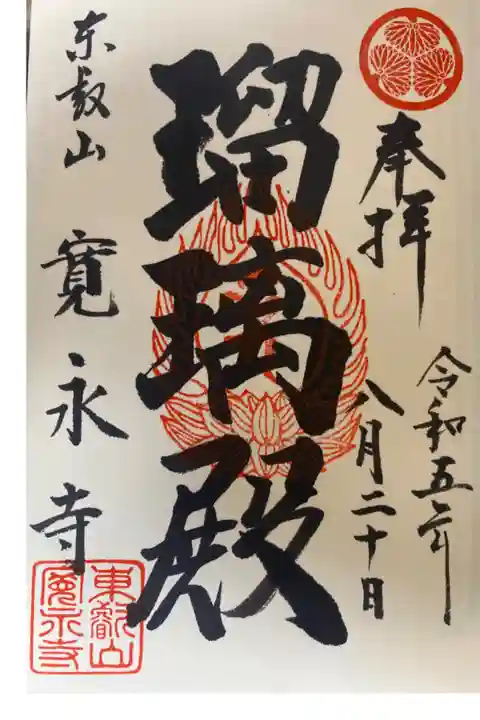 奉拝
令和五年
八月二十日
瑠璃殿
東叡山 寛永寺
東叡山
寛永寺